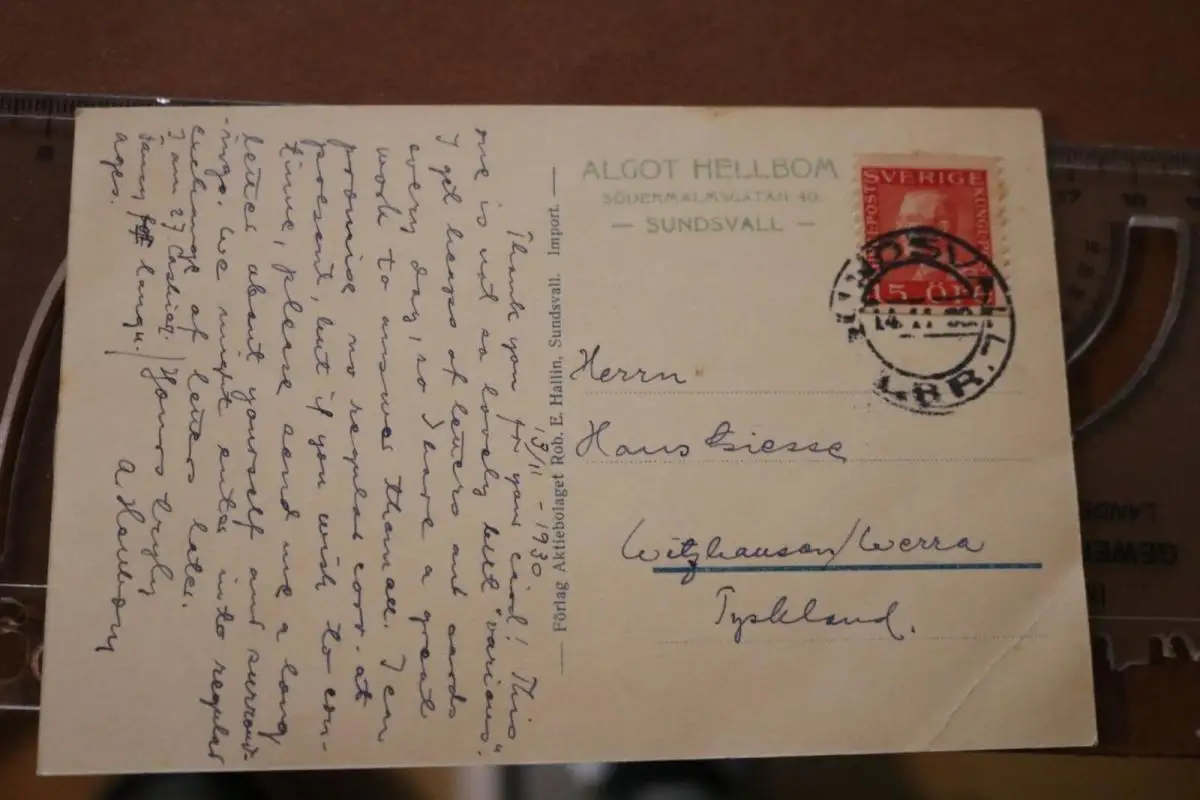 ALGOT HELLBOM
SÖDERMALMSGATAN 40.
— SUNDSVALL —
SVERIGE
15 ÖRE
SUNDSVALL
14 11 30
LBR. 1
Herrn
Hans Giesse
Witzhausen/Werra
Tyskland.
Förlag Aktiebolaget Rob. E. Hallin, Sundsvall. Import.
13/11 - 1930
Thank you for your card! This
one is not so lovely but "various".
I get heaps of letters and cards
every day, so I have a great
work to answer them all. I can
promise no regular corr. at
present, but if you wish to con-
tinue, please send me a long
letter about yourself and surround-
ings. We might enter into regular
exchange of letters later.
I am 27 Cashier.
Yours truly
langu.
ages.
A Hellbom
17
18
LANDE
GEWE